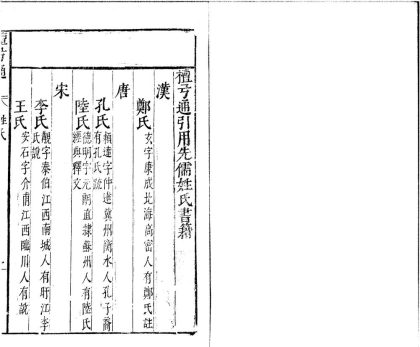 檀弓通引用先儒姓氏書籍
漢
鄭氏 玄字康成北海高密人有鄭氏註
唐
孔氏 穎達字仲達冀州衡水人孔子裔
有孔氏疏
陸氏 德明字元朗直隸蘇州人有陸氏
經典釋文
宋
李氏 覯字泰伯江西南城人有盱江李
氏說
王氏 安石字介甫江西臨川人有說
檀弓通
姓氏